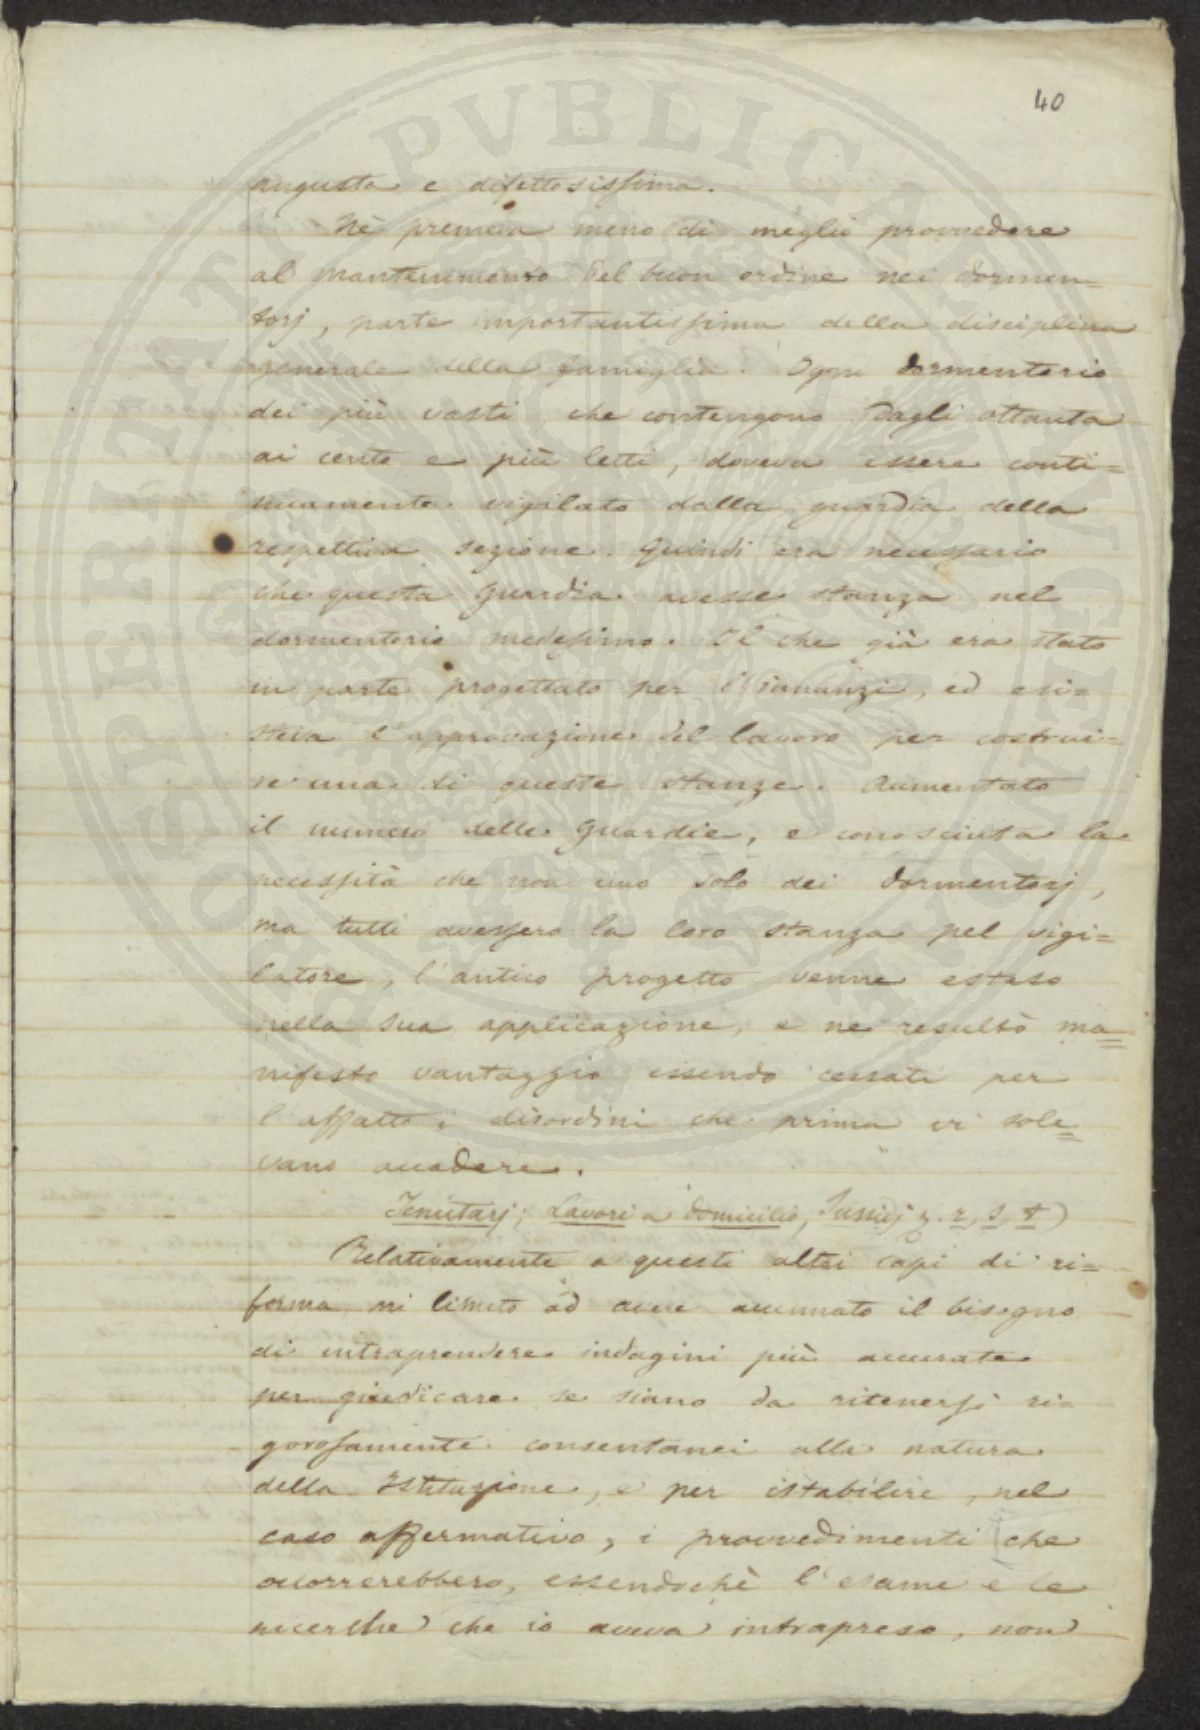 40
angusta e difettosissima.
Nè premeva meno di meglio provvedere
al mantenimento del buon ordine nei dormen=
torj, parte importantissima della disciplina
generale della famiglia. Ogni dormentorio
dei più vasti che contengono dagli ottanta
ai cento e più letti, doveva essere conti=
nuamente vigilato dalla guardia della
respettiva sezione. Quindi era necessario
che questa Guardia avesse stanza nel
dormentorio medesimo. Il che già era stato
in parte progettato per l'innanzi, ed esi=
steva l'approvazione del lavoro per costrui=
re una di queste stanze. Aumentato
il numero delle Guardie, e conosciuta la
necessità che non uno solo dei dormentorj,
ma tutti avessero la loro stanza pel vigi=
latore, l'antico progetto venne esteso
nella sua applicazione, e ne resultò ma=
nifesto vantaggio essendo cessati per
l'affatto i disordini che prima vi sole=
vano accadere.
Tenutarj, Lavori a domicilio, Sussidj r, s, t)
Relativamente a questi altri capi di ri=
forma mi limito ad avere accennato il bisogno
di intraprendere indagini più accurate
per giudicare se siano da ritenersi ri=
gorosamente consentanei alla natura
della Istituzione, e per istabilire, nel
caso affermativo, i provvedimenti che
occorrerebbero, essendochè l'esame e le
ricerche che io aveva intrapreso, non
PROSPERITATI PVBLICAE AVGENDAE